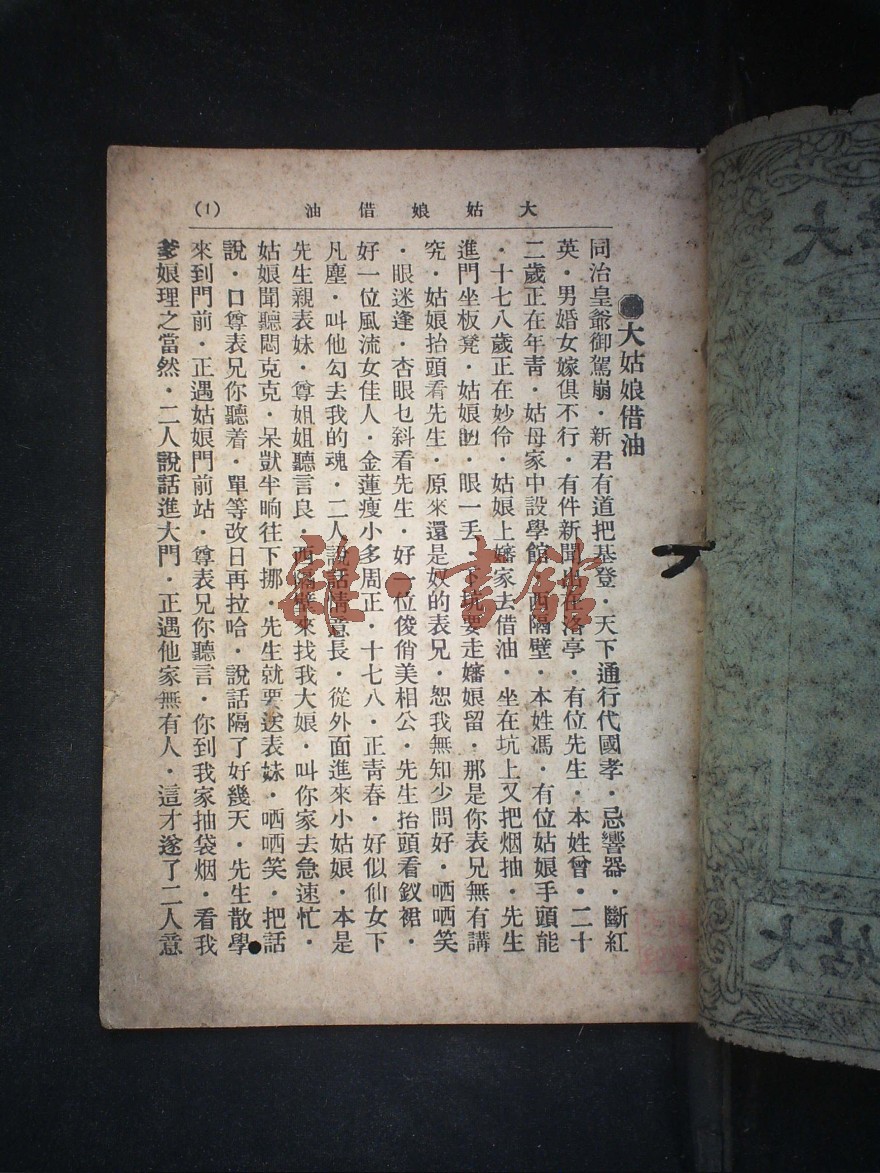 大姑娘借油
(1)
大姑娘借油
同治皇爺御駕崩·新君有道把基登·天下通行代國孝·忌響器·斷紅
英·男婚女嫁俱不行·有件新聞出在洛亭·有位先生·本姓曾·二十
二歲正在年青·姑母家中設學館·西隔壁·本姓馮·有位姑娘手頭能
·十七八歲正在妙伶·姑娘上嬸家去借油·坐在坑上又把烟抽·先生
進門坐板凳·姑娘·眼一丢·下坑要走嬸娘留·那是你表兄無有講
究·姑娘抬頭看先生·原來還是奴的表兄·恕我無知少問好·哂哂笑
·眼迷逢·杏眼乜斜看先生·好一位俊俏美相公·先生抬頭看釵裙·
好一位風流女佳人·金蓮瘦小多周正·十七八·正青春·好似仙女下
凡塵·叫他勾去我的魂·二人說話情意長·從外面進來小姑娘·本是
先生親表妹·尊姐姐聽言良·西隔壁來找我大娘·叫你家去急速忙·
姑娘聞聽悶克克·呆獃半晌往下挪·先生就要送表妹·哂哂笑·把話
說·口尊表兄你聽着·單等改日再拉哈·說話隔了好幾天·先生散學
來到門前·正遇姑娘門前站·尊表兄你聽言·你到我家抽袋烟·看我
爹娘理之當然·二人說話進大門·正遇他家無有人·這才遂了二人意
雜·書館
大
姑大